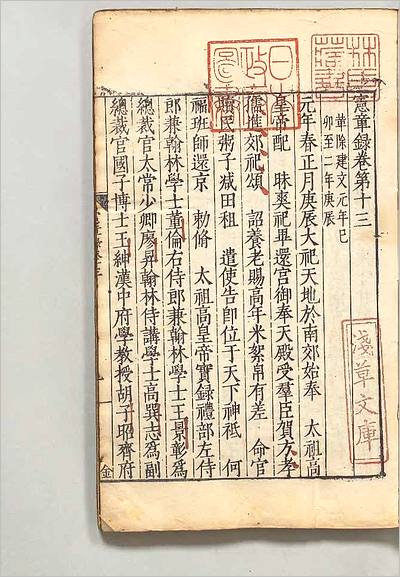 憲章録卷第十三
革除建文元年己
卯至二年庚辰
元年春正月庚辰大祀天地於南郊始奉　太祖高
皇帝配　昧爽祀畢還宮御奉天殿受羣臣賀方孝
孺進郊祀頌　詔養老賜高年米絮帛有差　命官
民粥子減田租　遣使告即位于天下神祇　何
福班師還京　勅脩　太祖高皇帝實録禮部左侍
郎兼翰林學士董倫右侍郎兼翰林學士王景彰爲
總裁官太常少卿廖昇翰林侍講學士高巽志爲副
總裁官國子博士王紳漢中府學教授胡子昭齊府
金
淺草文庫
日本